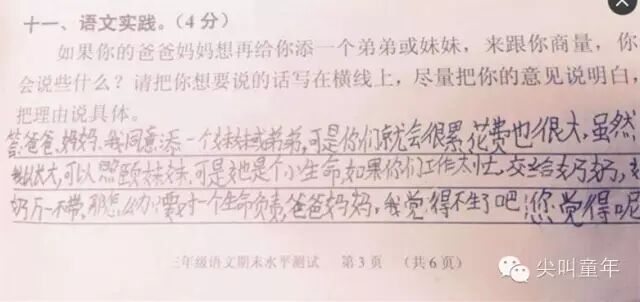 十一、语文实践。(4分)
如果你的爸爸妈妈想再给你添一个弟弟或妹妹，来跟你商量，你
会说些什么？请把你想要说的话写在横线上，尽量把你的意见说明白，
把理由说具体。
答爸爸，妈妈，我同意添一个妹妹或弟弟，可是你们就会很累，花费也很大，虽然
我大，可以照顾妹妹，可是她是个小生命，如果你们工作太忙，交给奶奶，
奶万一不带，那怎么办，要对一个生命负责，爸爸妈妈，我觉得不生了吧，您觉得呢
三年级语文期末水平测试 第3页 （共6页）
尖叫童年